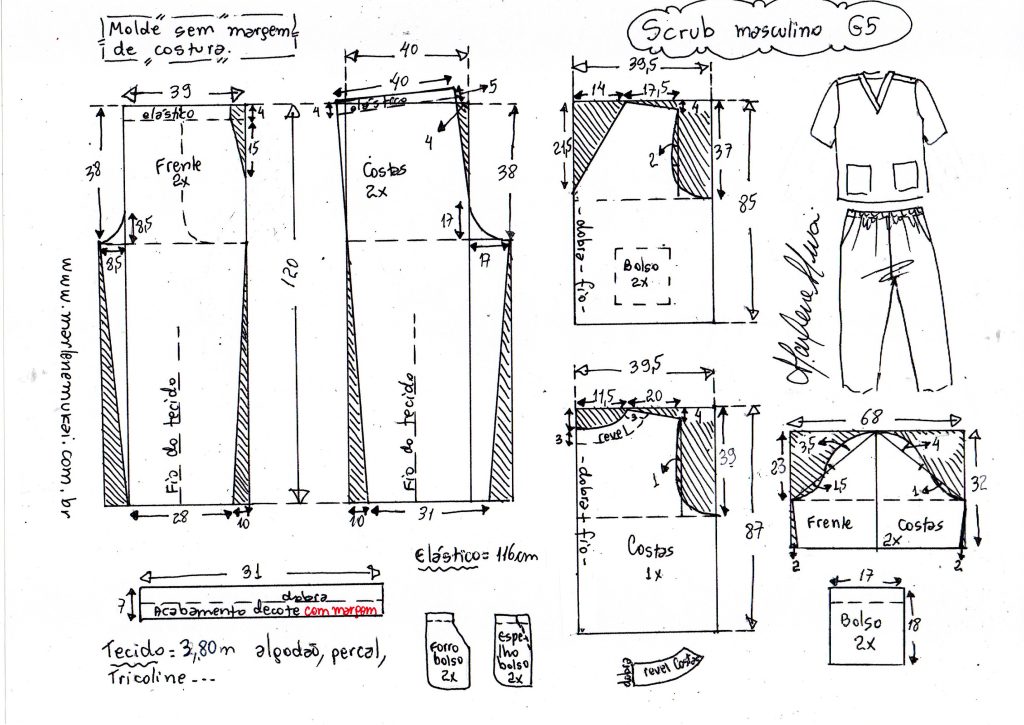 Molde sem margem
de costura.
Scrub masculino G5
39
elástico
4
15
38
Frente
2x
8,5
8,5
28
10
Fio do tecido
120
40
40
5
4
elástico
4
Costas
2x
38
17
17
10
31
Fio do tecido
39,5
14
17,5
4
21,5
2
37
85
-dobra-fio-
Bolso
2x
39,5
11,5
20
3
4
3
revel
1
39
87
-dobra+fio-
Costas
1x
68
3,5
4
23
1,5
1
32
Frente
Costas
2x
2
2
17
18
Bolso
2x
Elástico=116cm
31
7
dobra
Acabamento decote com margem
Tecido=3,80m algodão, percal,
Tricoline---
Forro
bolso
2x
Espe-
lho
bolso
2x
dobra
revel Costas
www.marlenemukai.com.br